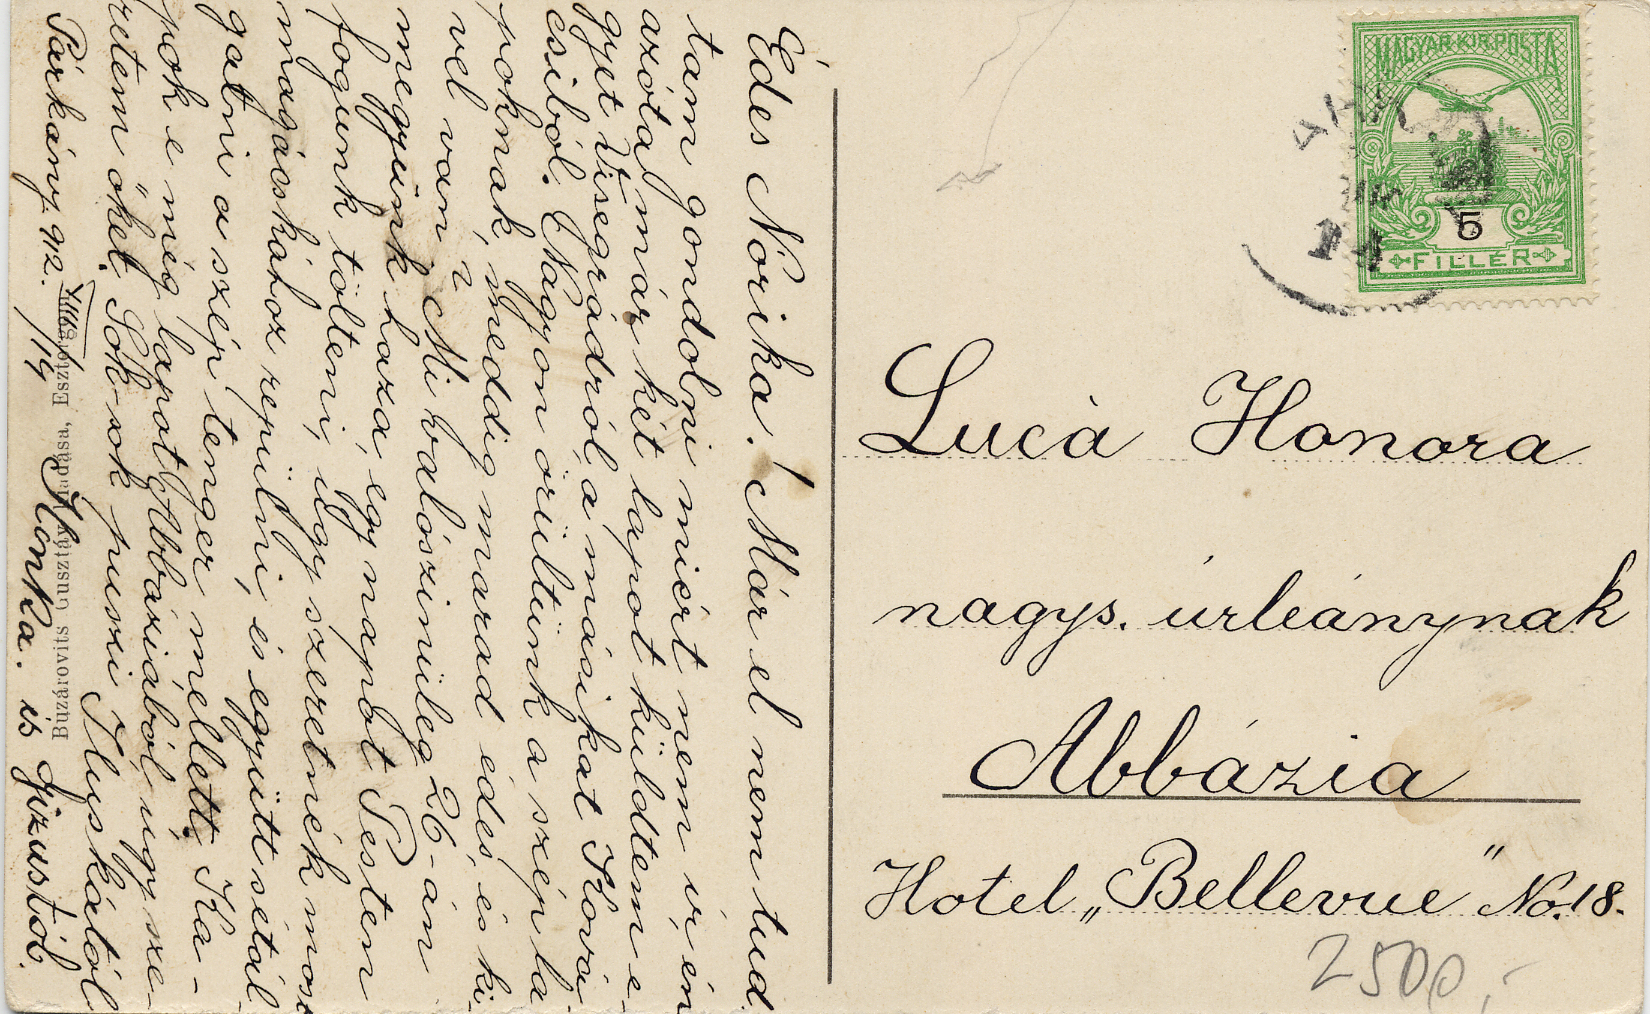 Édes Norika! Már el nem tud
tam gondolni miért nem ír, én
azótal már két lapot küldtem e-
gyet Visegrádról, a másikat Ková
csiból. Nagyon örültünk a szép la
poknak, meddig marad édes, és ki
vel van? Mi valószinüleg 26-án
megyünk haza, egy napot Pesten
fogunk tölteni, úgy szeretnék most
magácskához repülni, és együtt sétál
gatni a szép tenger mellett. Ka-
pok e még lapot Abbáziából, úgy sze-
retem őket. Sok-sok puszi Iluskától
Párkány. 912. VIII/14 Ilonka. és Gizustól.
Buzárovits Gusztáv kiadása, Esztergom
MAGYAR KIR. POSTA
5
FILLÉR
Luca Honora
nagys. úrleánynak
Abbázia
Hotel „Bellevue" No. 18.
2500,-